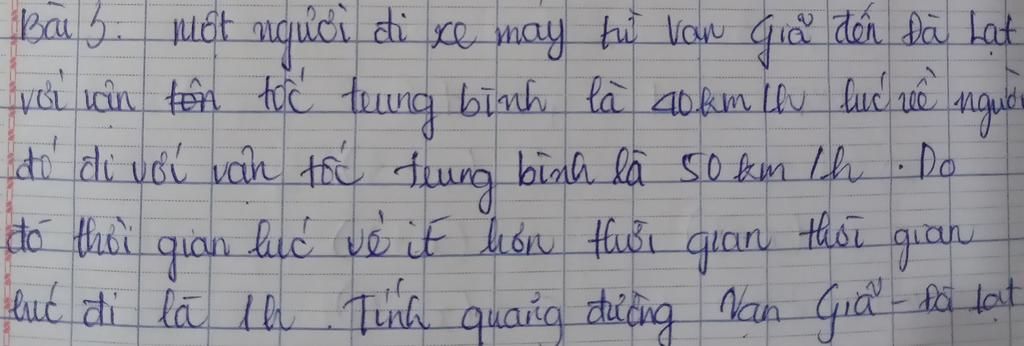 Bài 5. Một người đi xe máy từ Vạn Giã đến Đà Lạt
với vận tốc trung bình là 40km/h lúc về người
đó đi với vận tốc trung bình là 50km/h. Do
đó thời gian lúc về ít hơn thời gian thời gian
lúc đi là 1h. Tính quãng đường Vạn Giã - Đà Lạt